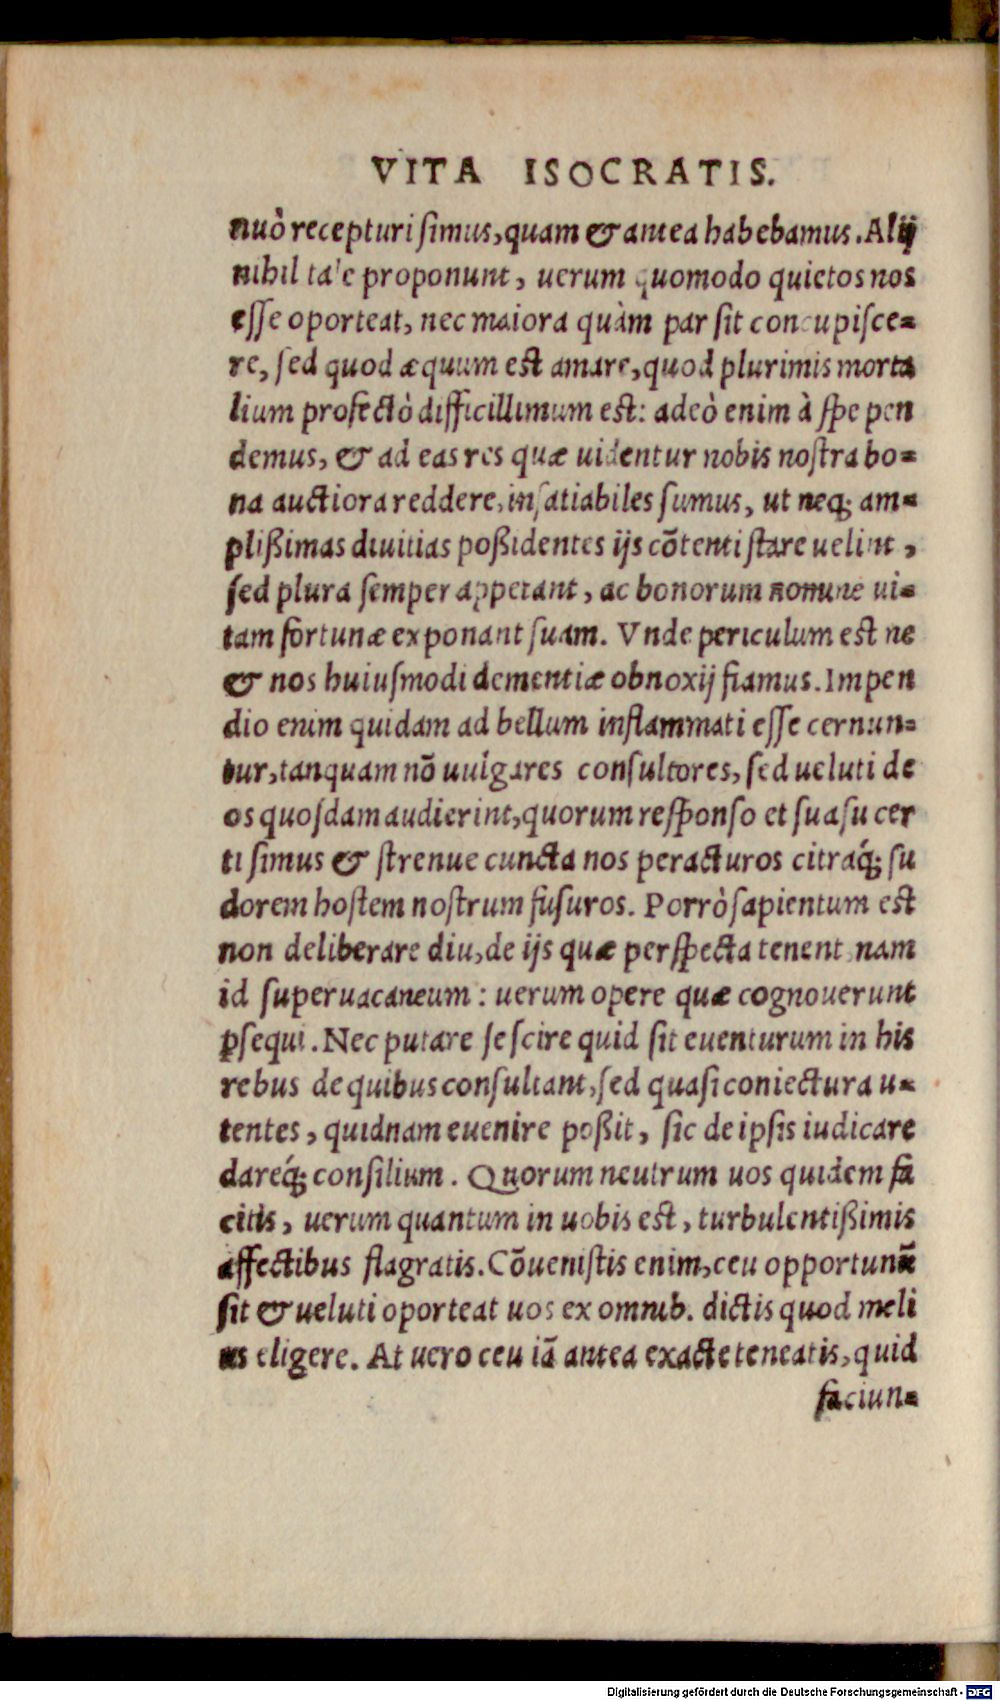 VITA ISOCRATIS.
nuò recepturi simus, quam & antea habebamus. Alij
nihil tale proponunt, uerum quomodo quietos nos
esse oporteat, nec maiora quàm par sit concupisce-
re, sed quod æquum est amare, quod plurimis morta
lium profectò difficillimum est: adeò enim à spe pen
demus, & ad eas res quæ uidentur nobis nostra bo-
na auctiora reddere, insatiabiles sumus, ut neq; am-
plißimas diuitias poßidentes ijs cõtenti stare uelint,
sed plura semper appetant, ac bonorum nomine ui-
tam fortunæ exponant suam. Vnde periculum est ne
& nos huiusmodi dementiæ obnoxij fiamus. Impen
dio enim quidam ad bellum inflammati esse cernun-
tur, tanquam nõ uulgares consultores, sed ueluti de
os quosdam audierint, quorum responso et suasu cer
ti simus & strenue cuncta nos peracturos citraq́; su
dorem hostem nostrum fusuros. Porrò sapientum est
non deliberare diu, de ijs quæ perspecta tenent, nam
id superuacaneum: uerum opere quæ cognouerunt
ꝑsequi. Nec putare se scire quid sit euenturum in his
rebus de quibus consultant, sed quasi coniectura u-
tentes, quidnam euenire poßit, sic de ipsis iudicare
dareq́; consilium. Quorum neutrum uos quidem fa
citis, uerum quantum in uobis est, turbulentißimis
affectibus flagratis. Cõuenistis enim, ceu opportunũ
sit & ueluti oporteat uos ex omnib. dictis quod meli
us eligere. At uero ceu iã antea exacte teneatis, quid
faciun-
Digitalisierung gefördert durch die Deutsche Forschungsgemeinschaft - DFG